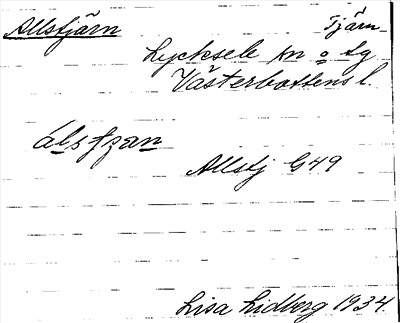 Allstjärn Tjärn
Lycksele sn o lg
Västerbottens l.
Allstj G49
Lisa Lidberg 1934.